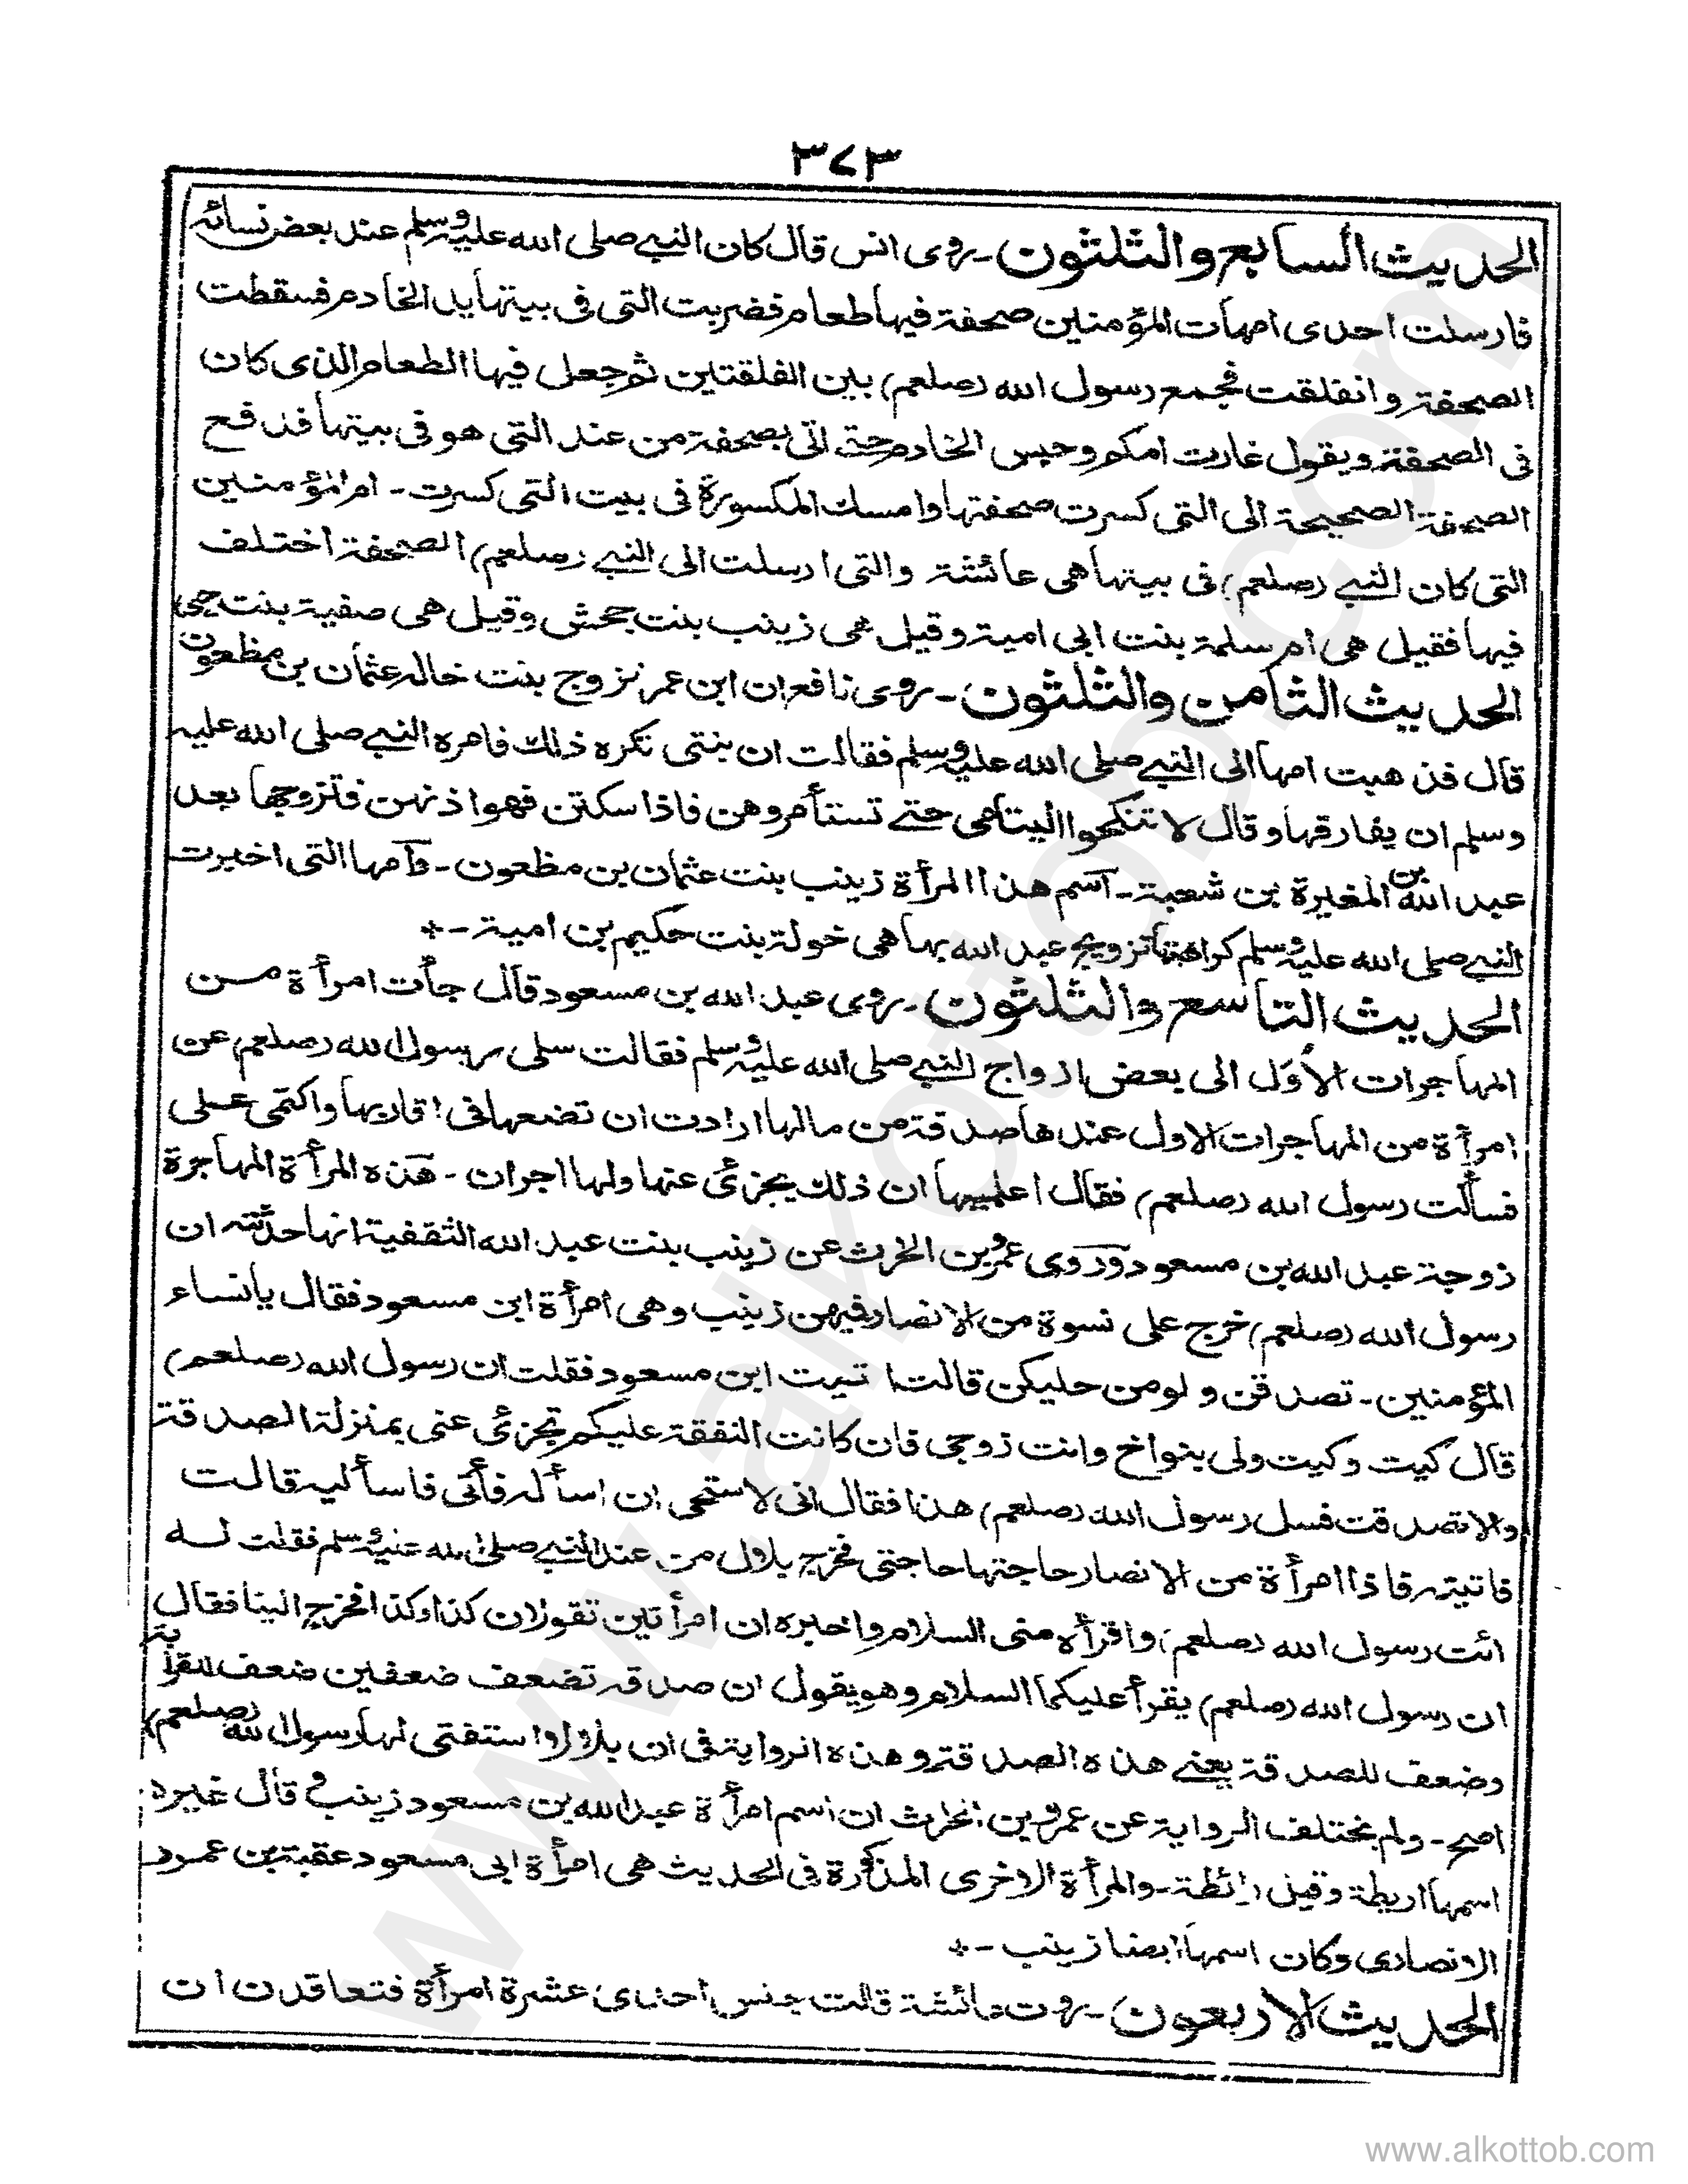 ٣٧٣
الحديث السابع والثلثون ـ روى انس قال كان النبى صلى الله عليه وسلم عند بعض نسائه
فارسلت احدى امهات المؤمنين صحفة فيها طعام فضربت التى فى بيتها يد الخادم فسقطت
الصحفة وانفلقت فجمع رسول الله (صلعم) بين الفلقتين ثم جعل فيها الطعام الذى كان
فى الصحفة ويقول غارت امكم وحبس الخادم حتى اتى بصحفة من عند التى هو فى بيتها فدفع
الصحفة الصحيحة الى التى كسرت صحفتها وامسك المكسورة فى بيت التى كسرت ـ ام المؤمنين
التى كان النبى (صلعم) فى بيتها هى عائشة والتى ارسلت الى النبى (صلعم) الصحفة اختلف
فيها فقيل هى ام سلمة بنت ابى امية وقيل هى زينب بنت جحش وقيل هى صفية بنت حيى
الحديث الثامن والثلثون ـ روى نافع ان ابن عمر تزوج بنت خاله عثمان بن مظعون
قال فذهبت امها الى النبى صلى الله عليه وسلم فقالت ان بنتى تكره ذلك فامره النبى صلى الله عليه
وسلم ان يفارقها وقال لا تنكحوا اليتامى حتى تستأمروهن فاذا سكتن فهو اذنهن فتزوجها بعد
عبد الله بن المغيرة بن شعبة ـ اسم هذا المرأة زينب بنت عثمان بن مظعون ـ وامها التى اخبرت
النبى صلى الله عليه وسلم كراهتها تزويج عبد الله بها هى خولة بنت حكيم بن امية ـ ٭
الحديث التاسع والثلثون ـ روى عبد الله بن مسعود قال جأت امرأة من
المهاجرات الأول الى بعض ازواج النبى صلى الله عليه وسلم فقالت سلى رسول الله (صلعم) عن
امرأة من المهاجرات الاول عندها صدقة من مالها ارادت ان تضعها فى اقاربها واكتمى على
فسألت رسول الله (صلعم) فقال اعلميها ان ذلك يجزئ عنها ولها اجران ـ هذه المرأة المهاجرة
زوجة عبد الله بن مسعود وروى عمرو بن الحرث عن زينب بنت عبد الله الثقفية انها حدثته ان
رسول الله (صلعم) خرج على نسوة من الانصار فيهن زينب وهى امرأة ابن مسعود فقال يا نساء
المؤمنين ـ تصدقن ولو من حليكن قالت اتيت ابن مسعود فقلت ان رسول الله (صلعم)
قال كيت وكيت ولى بنو اخ وانت زوجى فان كانت النفقة عليكم تجزئ عنى بمنزلة الصدقة
والا تصدقت فسل رسول الله (صلعم) هذا فقال انى لاستحى ان اسأله فأتى فاسأليه قالت
فاتيته فاذا امرأة من الانصار حاجتها حاجتى فخرج بلال من عند النبى صلى الله عليه وسلم فقلت له
ائت رسول الله (صلعم) واقرأه منى السلام واخبره ان امرأتين تقولان كذا وكذا فخرج الينا فقال
ان رسول الله (صلعم) يقرأ عليكما السلام وهو يقول ان صدقه تضعف ضعفين ضعف للقرابة
وضعف للصدقة يعنى هذه الصدقة وهذه الرواية فى ان بلالا استفتى لها رسول الله (صلعم)
اصح ـ ولم يختلف الرواية عن عمرو بن الحرث ان اسم امرأة عبد الله بن مسعود زينب وقال غيره
اسمها اريطة وقيل رائطة ـ والمرأة الاخرى المذكورة فى الحديث هى امرأة ابى مسعود عقبة بن عمرو
الانصارى وكان اسمها ايضا زينب ـ ٭
الحديث الاربعون ـ روت عائشة قالت جلس احدى عشرة امرأة فتعاقدن ان
www.alkottob.com
www.alkottob.com